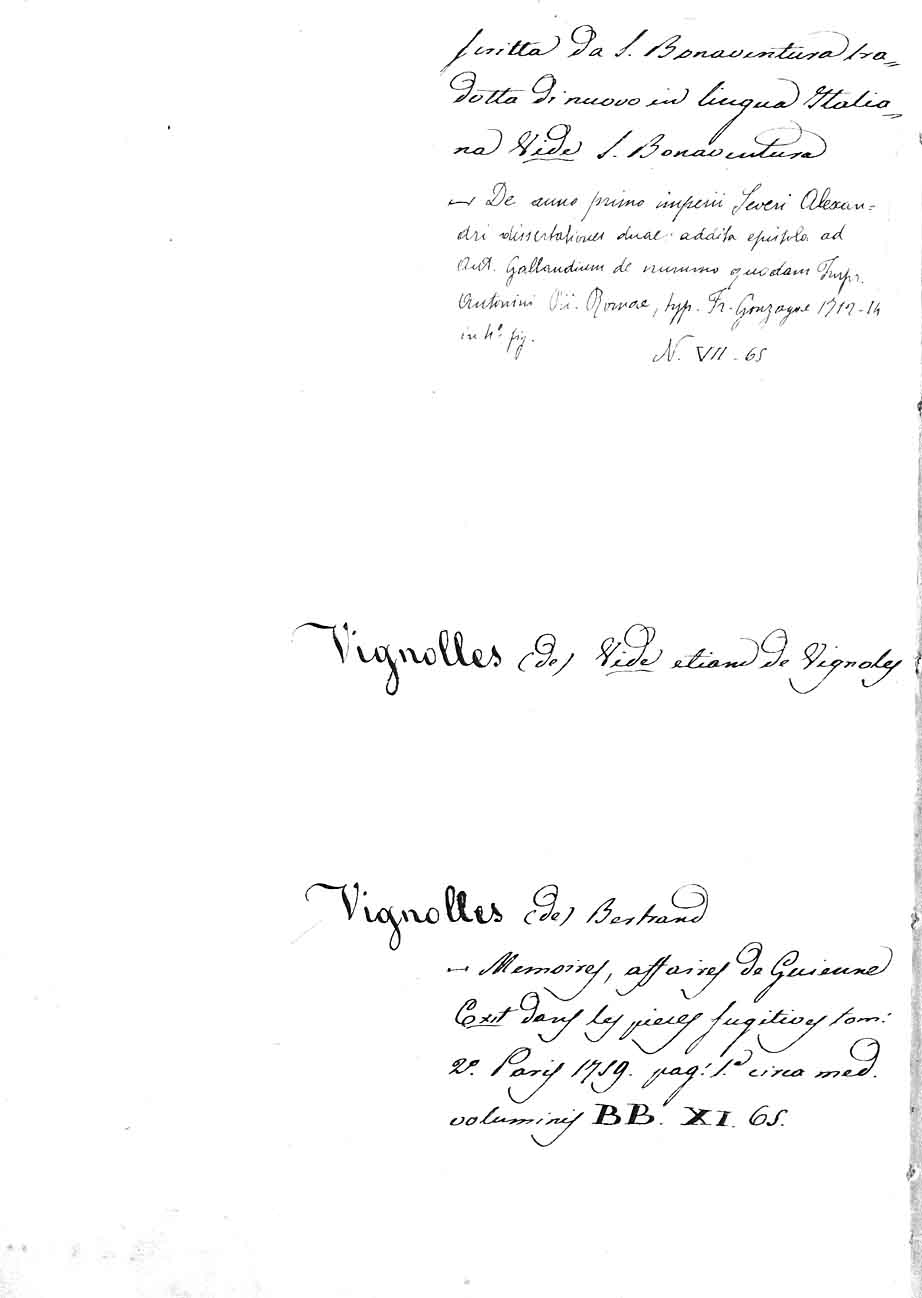 scritta da S. Bonaventura tra=
dotta di nuovo in lingua Italia=
na Vide S. Bonaventura
— De anno primo imperii Severi Alexan=
dri dissertationes duae addita epistola ad
Ant. Gallandium de nummo quodam Impr.
Antonini Pii. Romae, typ. Fr. Gonzagae 1712-14
in 4° fig.
N. VII. 65
Vignolles (de) Vide etiam de Vignoles
Vignolles (de) Bertrand
— Memoires, affaires de Guienne
Exit dans les pieces fugitives tom:
2° Paris 1759. pag: 1.ª circa med.
voluminis BB. XI. 65.